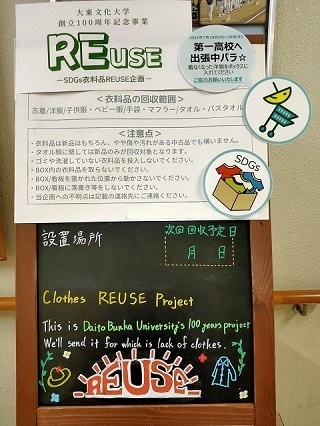 大東文化大学
創立100周年記念事業
REUSE
－SDGs衣料品REUSE企画－
第一高校へ
出張中バラ☆
着なくなった洋服をボックスに
入れてください
ご協力お願いします
＜衣料品の回収範囲＞
古着/洋服/子供服・ベビー服/手袋・マフラー/タオル・バスタオル
＜注意点＞
・衣料品は新品はもちろん、やや傷や汚れがある中古品でも構いません。
・タオル類に関しては新品のみが回収対象となります。
・ゴミや洗濯していない衣料品を投入しないでください。
・BOX内の衣料品を取らないでください。
・BOX/看板を置かれた位置から動かさないでください。
・BOX/看板に落書き等をしないでください。
・当企画への不明点は記載の連絡先にご連絡ください。
SDGs
設置場所
次回回収予定日
月 日
Clothes REUSE Project
This is Daito Bunka University's 100 years project
We'll send it for which is lack of clothes.
REUSE